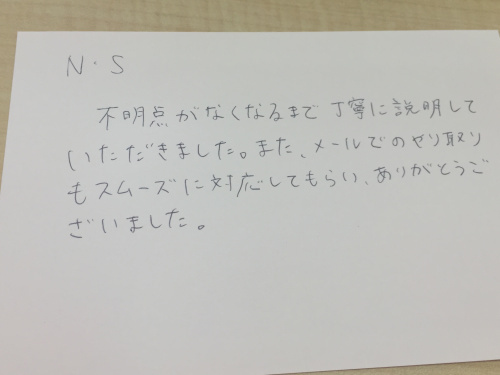 N・S
不明点がなくなるまで丁寧に説明して
いただきました。また、メールでのやり取り
もスムーズに対応してもらい、ありがとうご
ざいました。